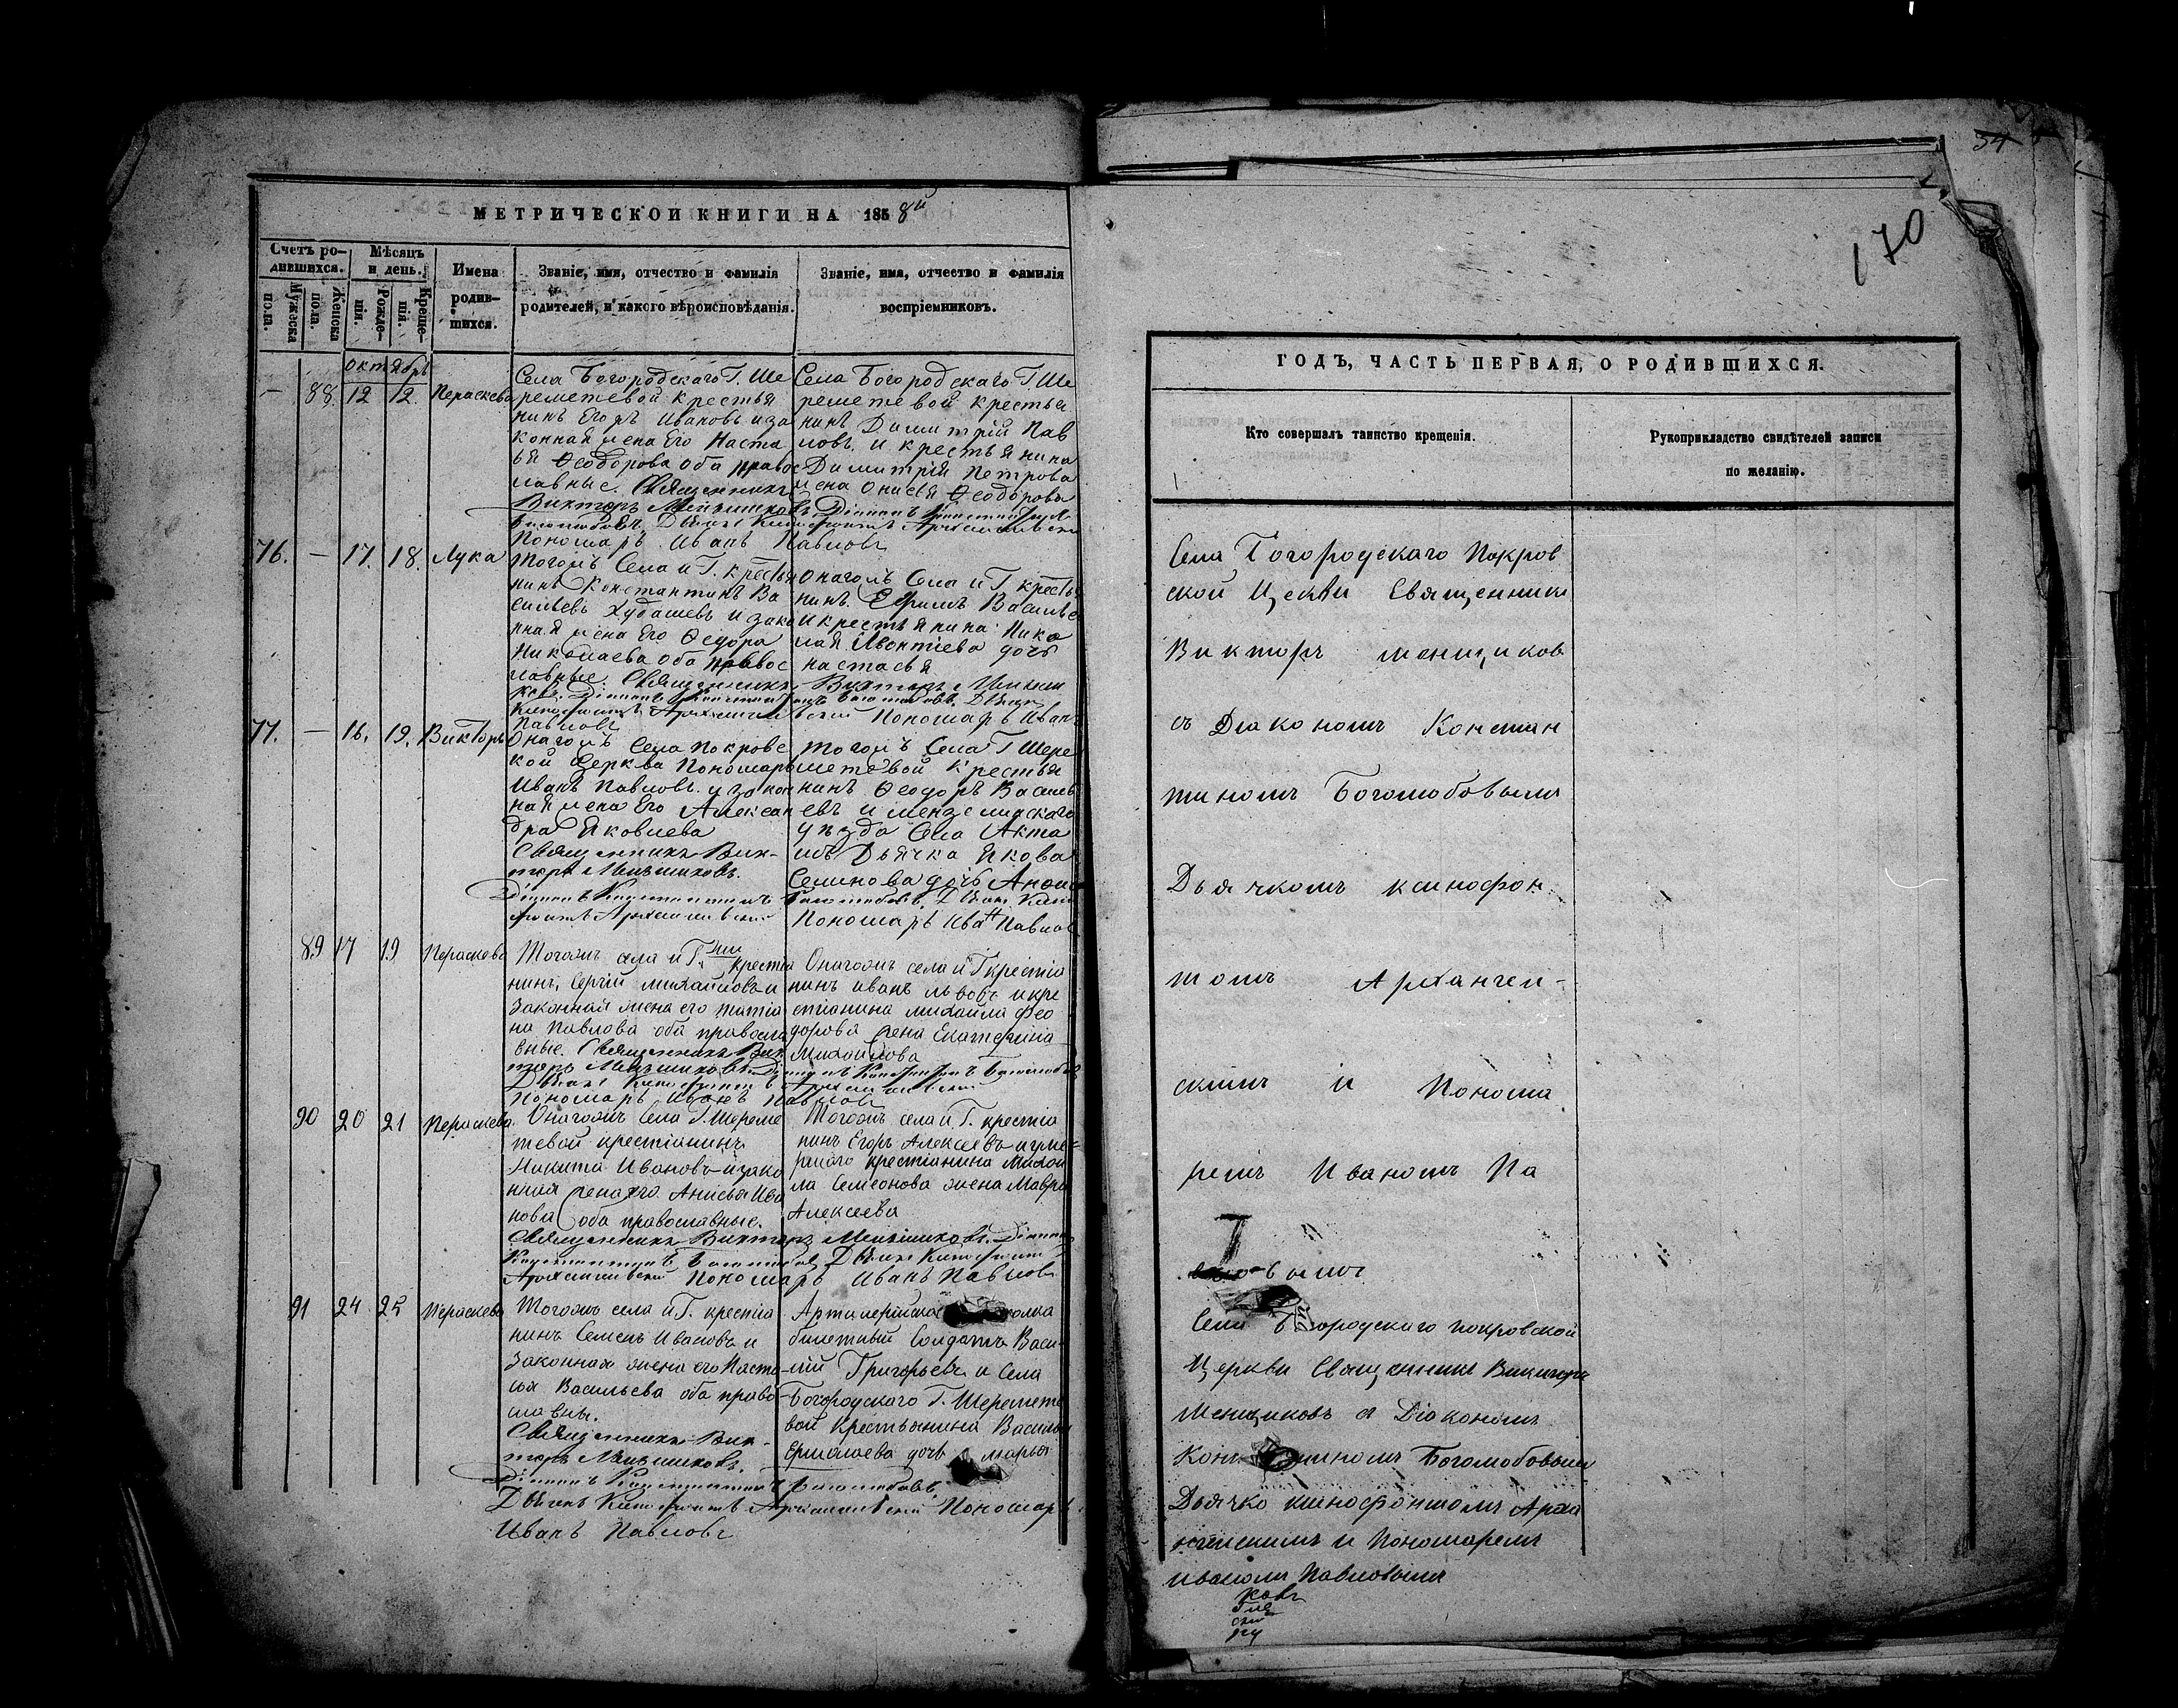 МЕТРИЧЕСКОЙ КНИГИ НА 1858й
Счетъ ро-
дившихся.
Мѣсяцъ
и день.
Имена
родив-
шихся.
Званіе, имя, отчество и фамилія
родителей, и какого вѣроисповѣданія.
Званіе, имя, отчество и фамилія
воспріемниковъ.
Мужеска
пола.
Женска
пола.
Рожде-
нія.
Креще-
нія.
октябрь
— 88. 12 12. Пераскева
Села Богородскаго Г. Ше
реметевой крестья
нинъ Егоръ Ивановъ и за
конная жена Его Наста
ья Ѳеодорова оба правос
лавные. Священникъ
Викторъ Меньшиковъ
Села Богородскаго Г. Ше
реметевой крестья
нинъ Димитрій Пав
ловъ и крестьянина
Димитрія Петрова
жена Онисья Ѳеодорова
Пономарь Иванъ Павловъ
76. — 17. 18. Лука
Тогожъ Села и Г. крестья
нинъ Константинъ Ва
сильевъ Худашевъ и зако
нная жена Его Ѳедора
Николаева оба правос
лавные. Священникъ
Онагожъ Села и Г. крестья
нинъ Ефимъ Василье
и крестьянина Нико
лая Леонтіева дочь
настасья
Викторъ Меньши
Пономарь Иванъ
Павловъ
77. — 16. 19. Викторъ
Онагожъ Села Покровс
кой Церкви Пономарь
Иванъ Павловъ и закон
ная жена Его Алексан
дра Яковлева
Священникъ Вик-
торъ Меньшиковъ.
Тогожъ Села Г Шере
метевой крестья
нинъ Ѳеодоръ Василь
евъ и мензелинскаго
уѣзда Села Акта
Дьячка Якова
Семенова дочь
Пономарь Иванъ Павлов
89 17 19 Пераскева
Тогожъ села и Г. крестья
нинъ, Сергій михайловъ и
законная жена его татіа
на Павлова оба правосла
вные. Священникъ Вик
торъ Меньшиковъ
Онагожъ села и Г крестіа
нинъ иванъ львовъ и кре
стіанина михаила Фео
дорова жена Екатерина
Михайлова
Пономарь Иванъ Павловъ
90 20 21 Пераскева.
Онагожъ Села Г. Шереме
тевой крестіанинъ
Никита Ивановъ и зако
нная жена его Анисья Ива
нова оба православные.
Тогожъ села и Г. крестіа
нинъ Егоръ Алексеевъ и уме=
ршаго крестіанина Михаи
ла Семеонова жена Мавра
Алексеева
Священникъ Викторъ Меньшиковъ. Діаконъ
Пономарь Иванъ Павловъ
91 24 25 Пераскева
Тогожъ села и Г. крестіа
нинъ Семенъ Ивановъ и
законная жена его Наста-
сья Васильева оба право
славны.
Священникъ Вик-
торъ Меньшиковъ.
Артилерійска полка
билетный Солдатъ Васи-
лій Григорьевъ и Села
Богородского Г. Шеремете
вой крестьянина Василья
Ермолаева дочь марья
Пономарь
Иванъ Павловъ
170
ГОДЪ, ЧАСТЬ ПЕРВАЯ, О РОДИВШИХСЯ.
Кто совершалъ таинство крещенія.
Рукоприкладство свидѣтелей записи
по желанію.
Села Богородскаго Покров
ской Церкви Священникъ
Викторъ меншиков
съ Діакономъ Констан
тиномъ Боголюбовымъ
Дьячкомъ ксенофон
томъ Архангел-
скимъ и Понома
ремъ Иваномъ Па
вловымъ
Села Богородскаго покровской
Церкви Священникъ Викторъ
Меншиковъ съ Діакономъ
Константиномъ Боголюбовымъ
Дьячко ксинофонтомъ Арха
нгелскимъ и Пономаремъ
иваномъ Павловымъ